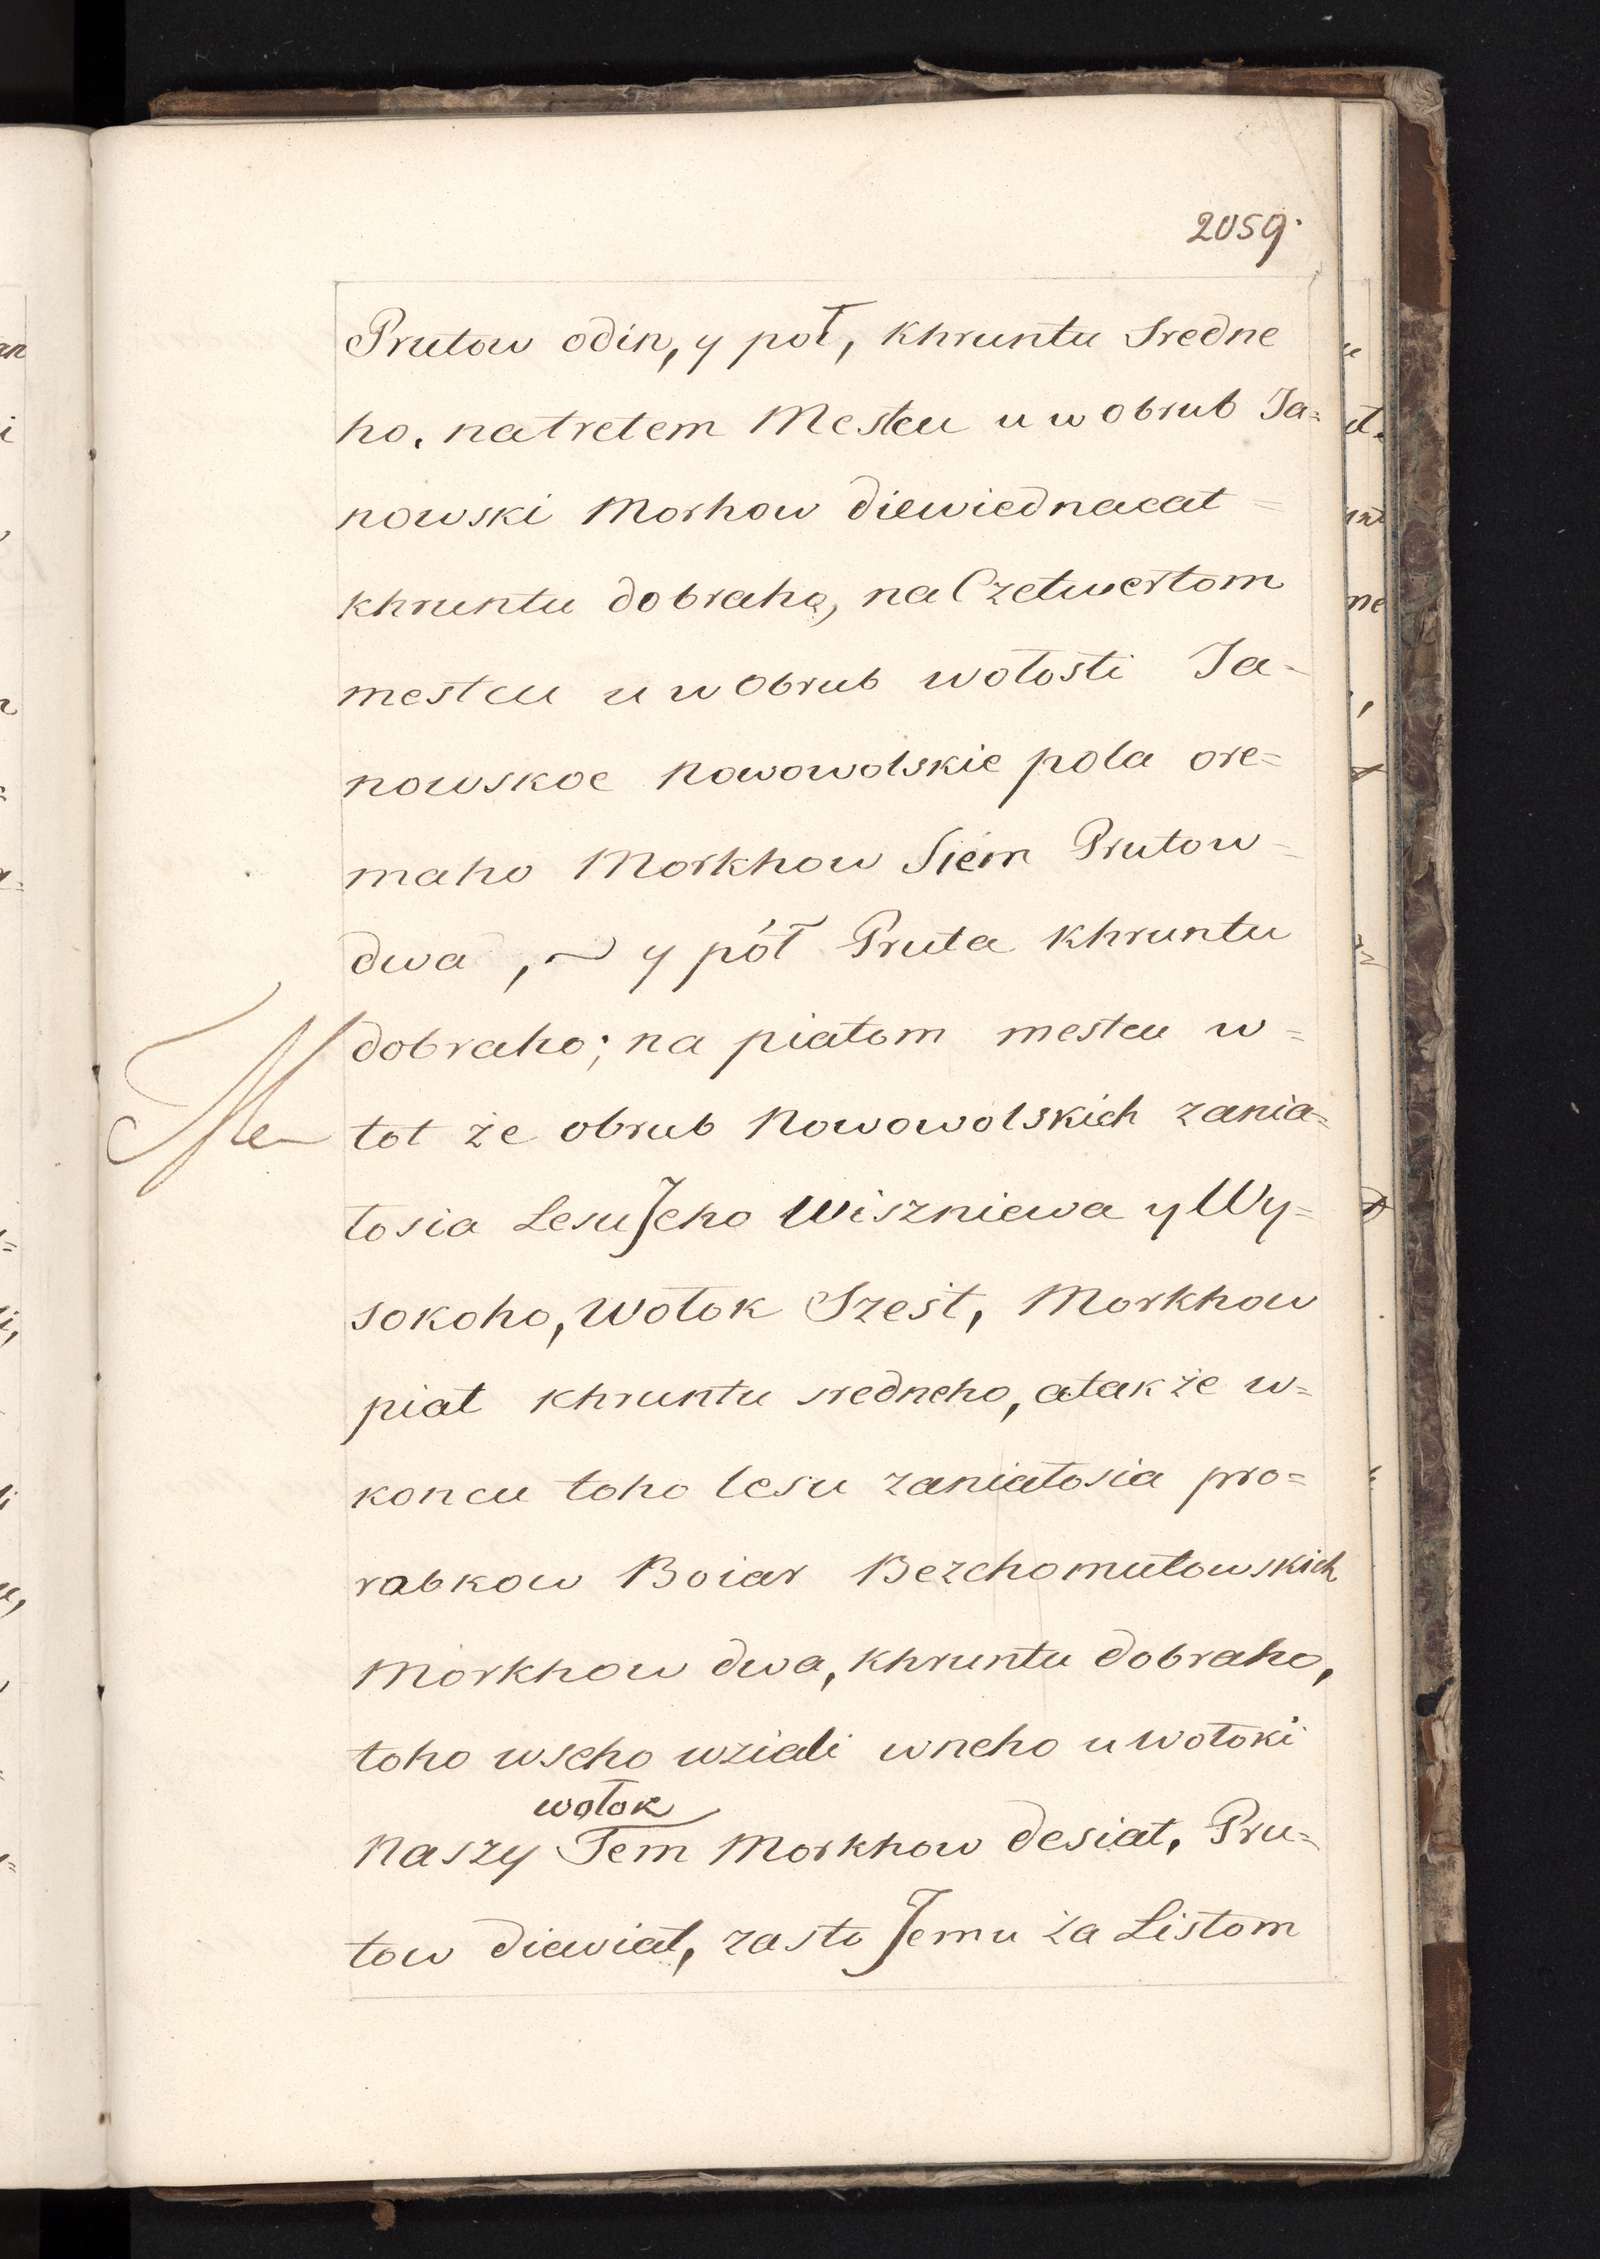 2059.
Prutow odin, y poł, khruntu Sredne
ho, na tretem Mestcu u w obrub Ja=
nowski Morhow diewiednacat =
khruntu dobraho, na Czetwertom
mestcu u w Obrub wołosti Ja-
nowskoe Nowowolskie pola ore=
maho Morkhow Siem Prutow -
dwa, ~ y pół Pruta khruntu
dobraho; na piatom mestcu w =
tot że obrub Nowowolskich zania=
łosia Lesu Jeho Wiszniewa y Wy=
sokoho, Wołok Szest, Morkhow
piat khruntu sredneho, atakże w=
koncu toho lesu zaniałosia pro=
rabkow Boiar Bezchomutowskich
Morkhow dwa, khruntu dobraho,
toho wseho wziali w neho u wołoki
wołok
Naszy Sem Morkhow desiat, Pru-
tow diewiat, zasto Jemu za Listom